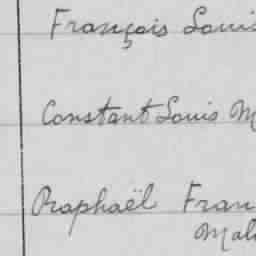 François Louis
Constant Louis M
Raphaël Fran
Mal